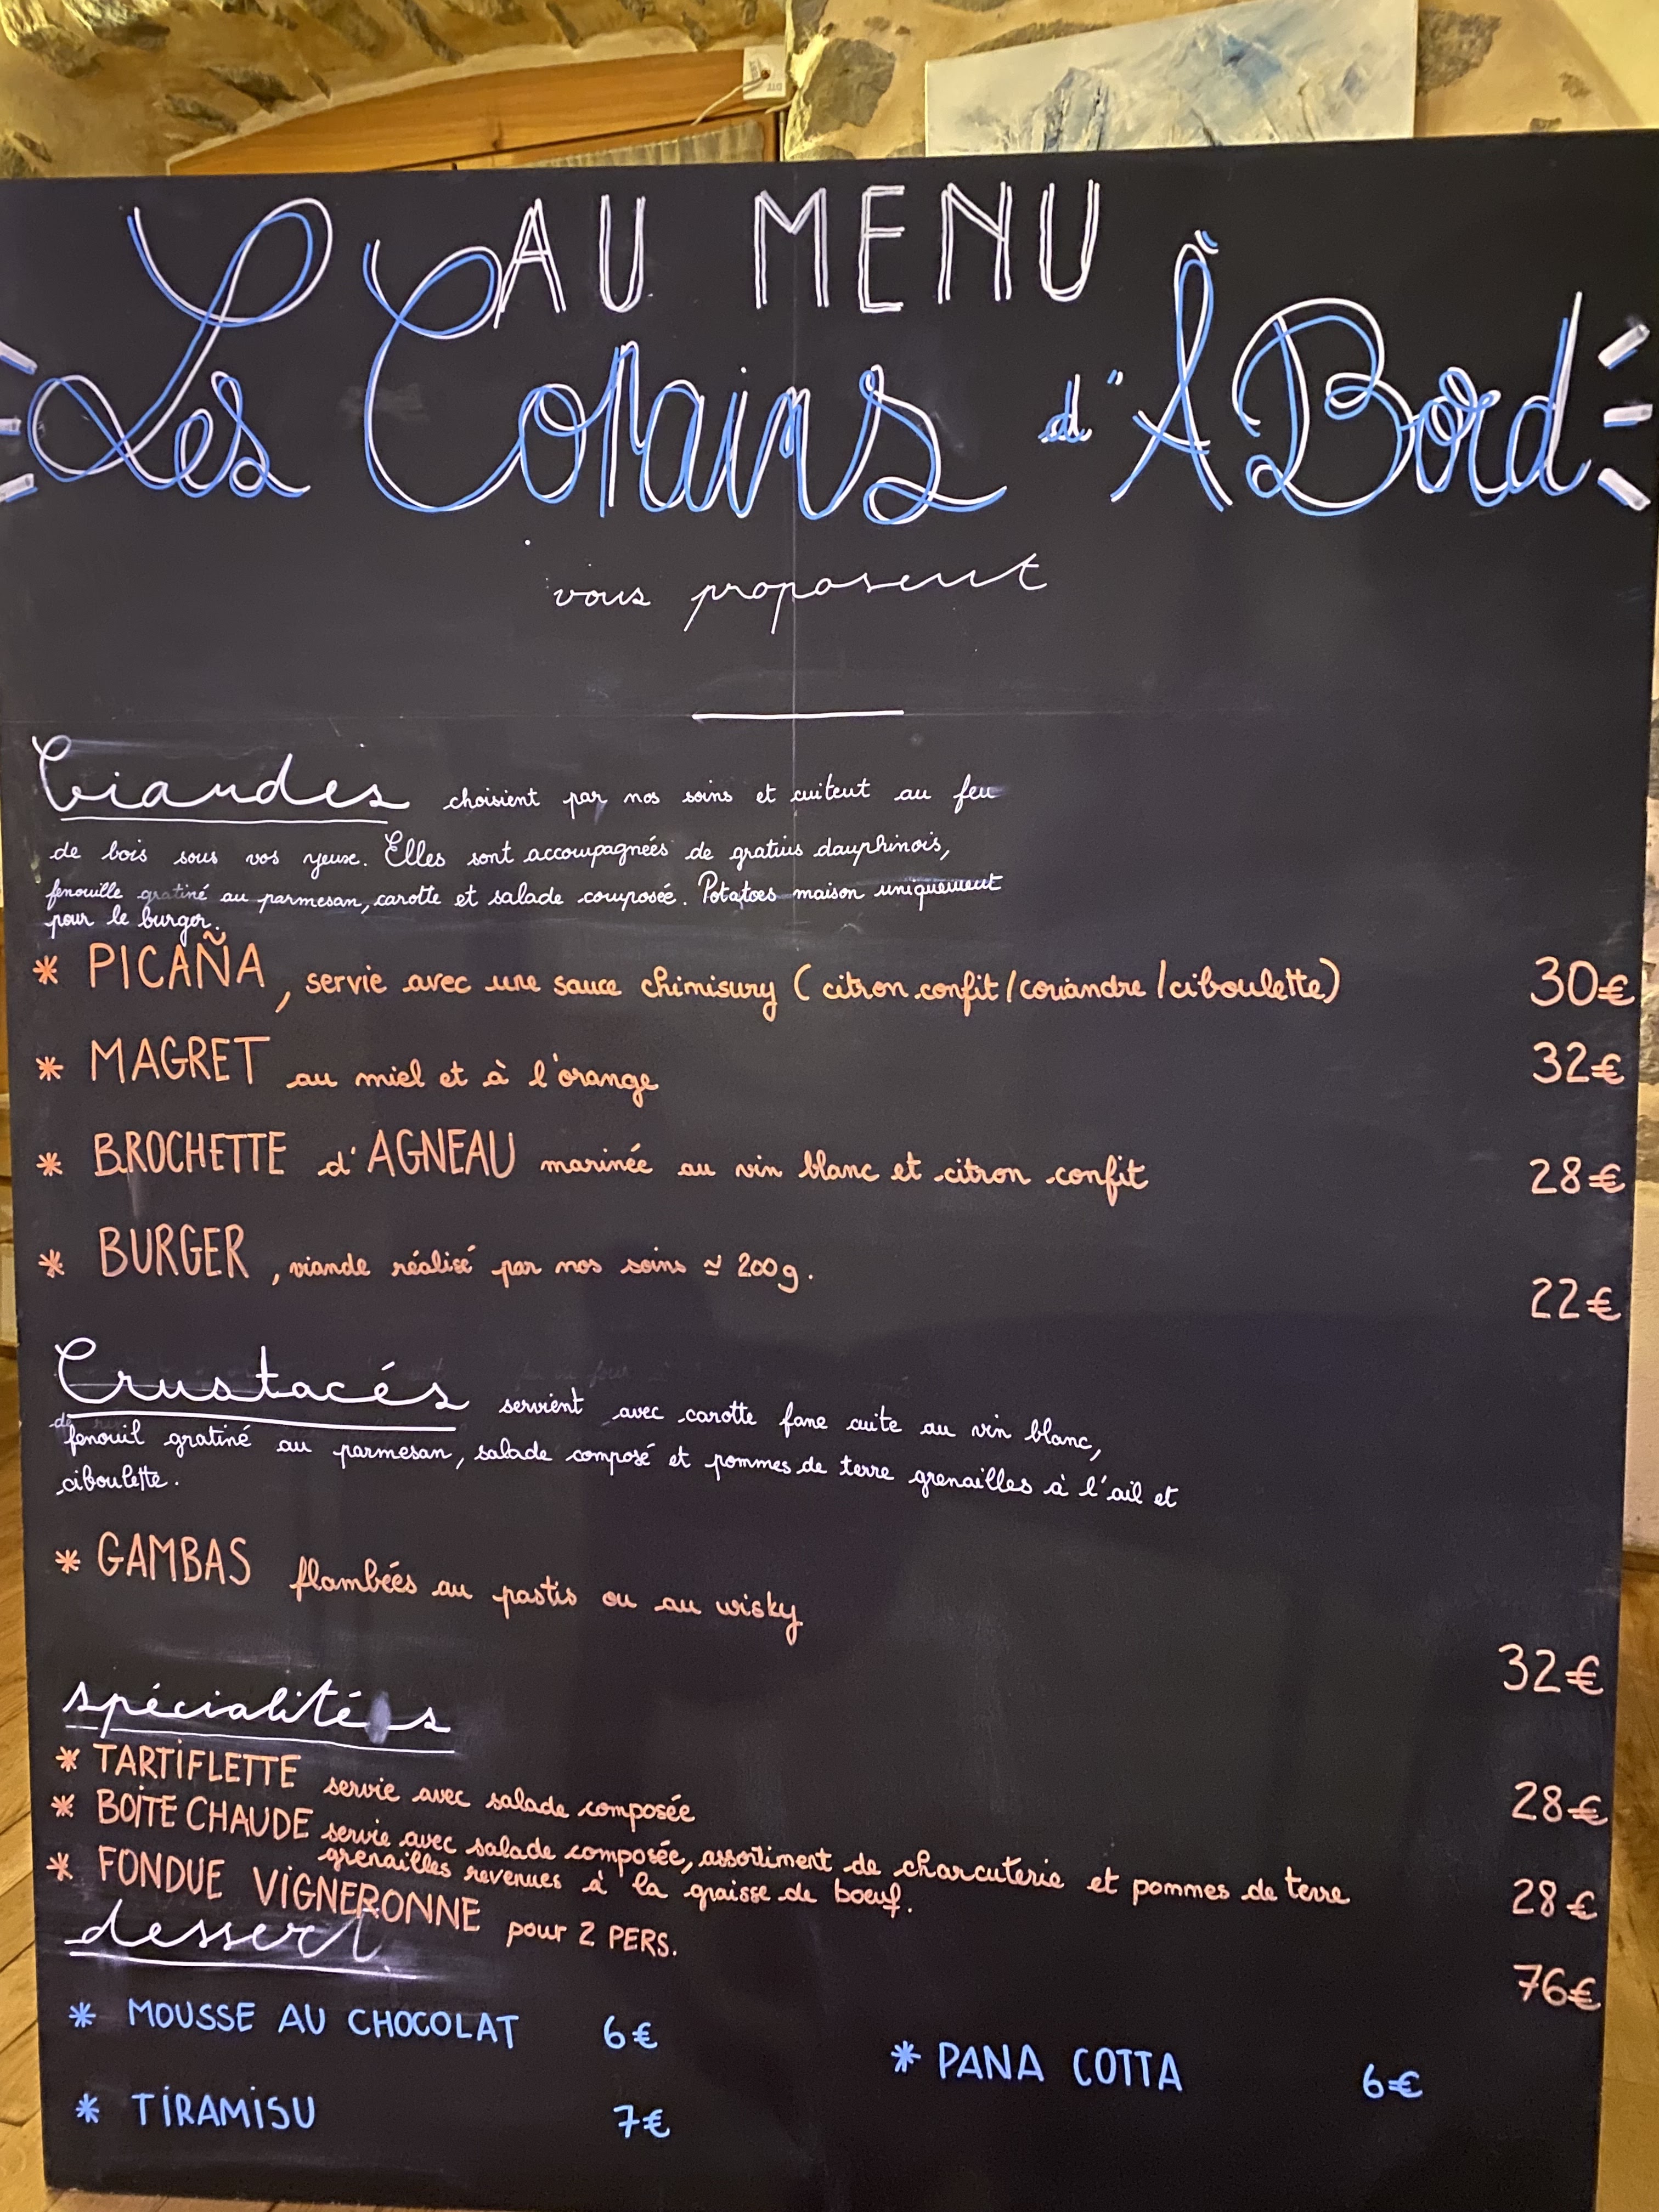 AU MENU
Les Copains d'À Bord
vous proposent
Viandes choisient par nos soins et cuitent au feu
de bois sous vos yeux. Elles sont accompagnées de gratins dauphinois,
fenouille gratiné au parmesan, carotte et salade composée. Potatoes maison uniquement
pour le burger.
* PICAÑA, servie avec une sauce chimisury (citron confit/coriandre/ciboulette) 30€
* MAGRET au miel et à l'orange 32€
* BROCHETTE d'AGNEAU marinée au vin blanc et citron confit 28€
* BURGER, viande réalisé par nos soins ≃ 200g. 22€
Crustacés servient avec carotte fane cuite au vin blanc,
de fenouil gratiné au parmesan, salade composé et pommes de terre grenailles à l'ail et
ciboulette.
* GAMBAS flambées au pastis ou au wisky 32€
spécialités
* TARTIFLETTE servie avec salade composée 28€
* BOITE CHAUDE servie avec salade composée, assortiment de charcuterie et pommes de terre
grenailles revenues à la graisse de boeuf. 28€
* FONDUE VIGNERONNE pour 2 PERS. 76€
dessert
* MOUSSE AU CHOCOLAT 6€
* PANA COTTA 6€
* TIRAMISU 7€